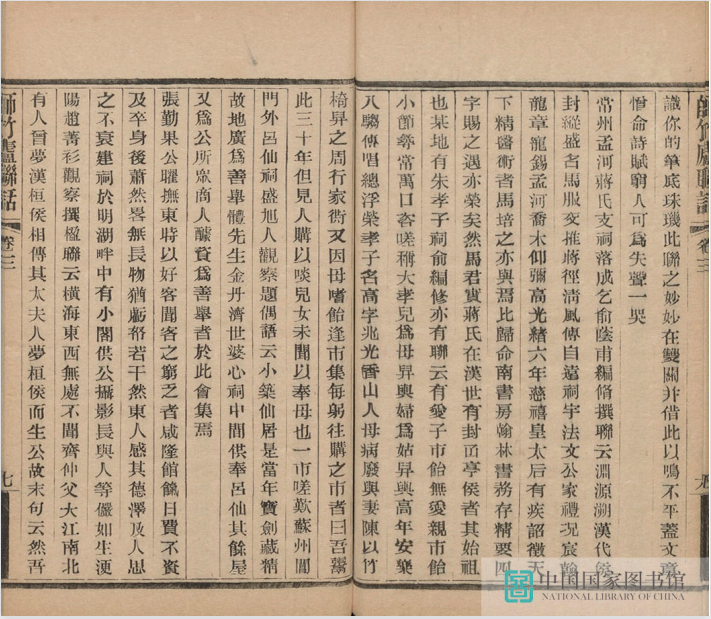 師竹廬聯話 卷三
識你的筆底珠璣此聯之妙妙在雙關并借此以鳴不平蓋文章
憎命詩賦窮人可爲失聲一哭
常州孟河蔣氏支祠落成乞俞蔭甫編脩撰聯云淵源溯漢代侯
封縱盛名馬服交推蔣徑清風傳自遠祠宇法文公家禮況宸翰
龍章龍錫孟河喬木仰彌高光緒六年慈禧皇太后有疾詔徵天
下精醫術者馬培之亦與焉比歸命南書房翰林書務存精要四
字賜之遇亦榮矣然馬君實蔣氏在漢世有封亭侯者其始祖
也某地有朱孝子祠俞編修亦有聯云有愛子市飴無愛親市飴
小節尋常萬口咨嗟稱大孝兒爲母舁輿婦爲姑舁輿高年安樂
八騶傳唱總浮榮孝子名高字兆光香山人母病廢與妻陳以竹
椅舁之周行家衖又因母嗜飴逢市集每躬往購之市者曰吾鬻
此三十年但見人購以啖兒女未聞以奉母也一市嗟歎蘇州閶
門外呂仙祠盛旭人觀察題偶語云小築仙居是當年寶劍藏精
故地廣爲善舉體先生金丹濟世婆心祠中間供奉呂仙其餘屋
又爲公所衆商人醵資爲善舉者於此會集焉
張勤果公曜撫東時以好客聞客之窮乏者咸隆館餼日費不貲
及卒身後蕭然畧無長物猶虧帑若干然東人感其德澤及人思
之不衰建祠於明湖畔中有小閣供公攝影長與人等儼如生溧
陽趙菁衫觀察撰楹聯云橫海東西無處不聞齊仲父大江南北
有人曾夢漢桓侯相傳其太夫人夢桓侯而生公故末句云然吾
師竹廬聯話 卷三 七
中国国家图书馆
NATIONAL LIBRARY OF CHINA